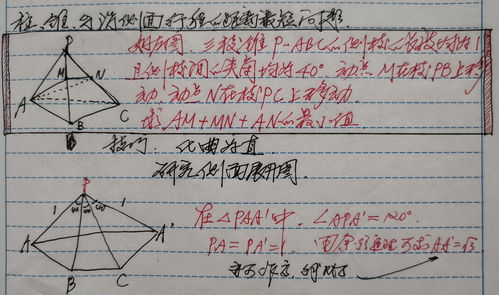 柱、锥、台沿侧面行程的距离最短问题
如右图 三棱锥P-ABC的侧棱的长度均为1
且侧棱间的夹角均为40° 动点M在棱PB上移
动,动点N在棱PC上移动.
求AM+MN+AN的最小值
P
M
N
A
B
C
技巧: 化曲为直
研究侧面展开图.
P
1
40
40
40
1
A
A'
B
C
在△PAA'中, ∠APA'=120°
PA=PA'=1 由余弦定理可求AA'=√3.